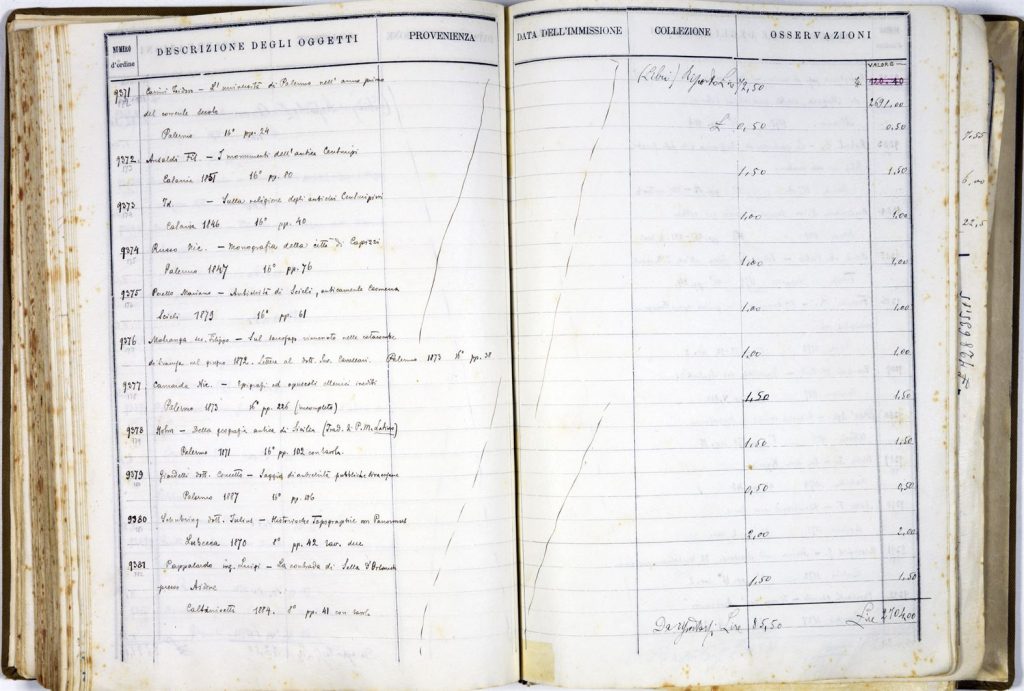 NUMERO d'ordine
DESCRIZIONE DEGLI OGGETTI
PROVENIENZA
DATA DELL'IMMISSIONE
COLLEZIONE
OSSERVAZIONI
VALORE
(Libri) 72,50
120.40
2691.00
9371 – L'università di Palermo nell'anno primo
del corrente secolo
Palermo 16° pp. 24
L 0,50 0,50
9372 Ansaldi Fil. – I monumenti dell'antica Centuripi
Catania 1851 16° pp. 80
1,50 1,50
9373 Id. – Sulla religione degli antichi Centuripini
Catania 1846 16° pp. 40
1,00 1,00
9374 Russo Nic. – Monografia della città di Capizzi
Palermo 1847 16° pp. 76
1,00 1,00
9375 Perello Mariano – Antichità di Scicli, anticamente Casmena
Scicli 1879 16° pp. 61
1,00 1,00
9376 Filippo – Sul sarcofago rinvenuto nelle catacombe
di Siracusa nel giugno 1872. Lettera al dott. Sav. Cavallari. Palermo 1873 16° pp. 38
1,00 1,00
9377 Camarda Nic. – Epigrafi ed opuscoli ellenici inediti
Palermo 1873 16° pp. 226 (incompleto)
1,50 1,50
9378 Holm – Della geografia antica di Sicilia (Trad. di P. M. Latino)
Palermo 1871 16° pp. 102 con tavola
1,50 1,50
9379 dott. Concetto – Saggio di antichità pubbliche siracusane
Palermo 1887 16° pp. 106
0,50 0,50
9380 Schubring dott. Julius – Historische Topographie von Panormus
Lubecca 1870 8° pp. 42 tav. due
2,00 2,00
9381 Pappalardo ing. Luigi – La contrada di
presso Aidone
Caltanissetta 1884. 8° pp. 41 con tavola
1,50 1,50
Da Lire 85,50 Lire 2704,00
7.55
6,00
22,5